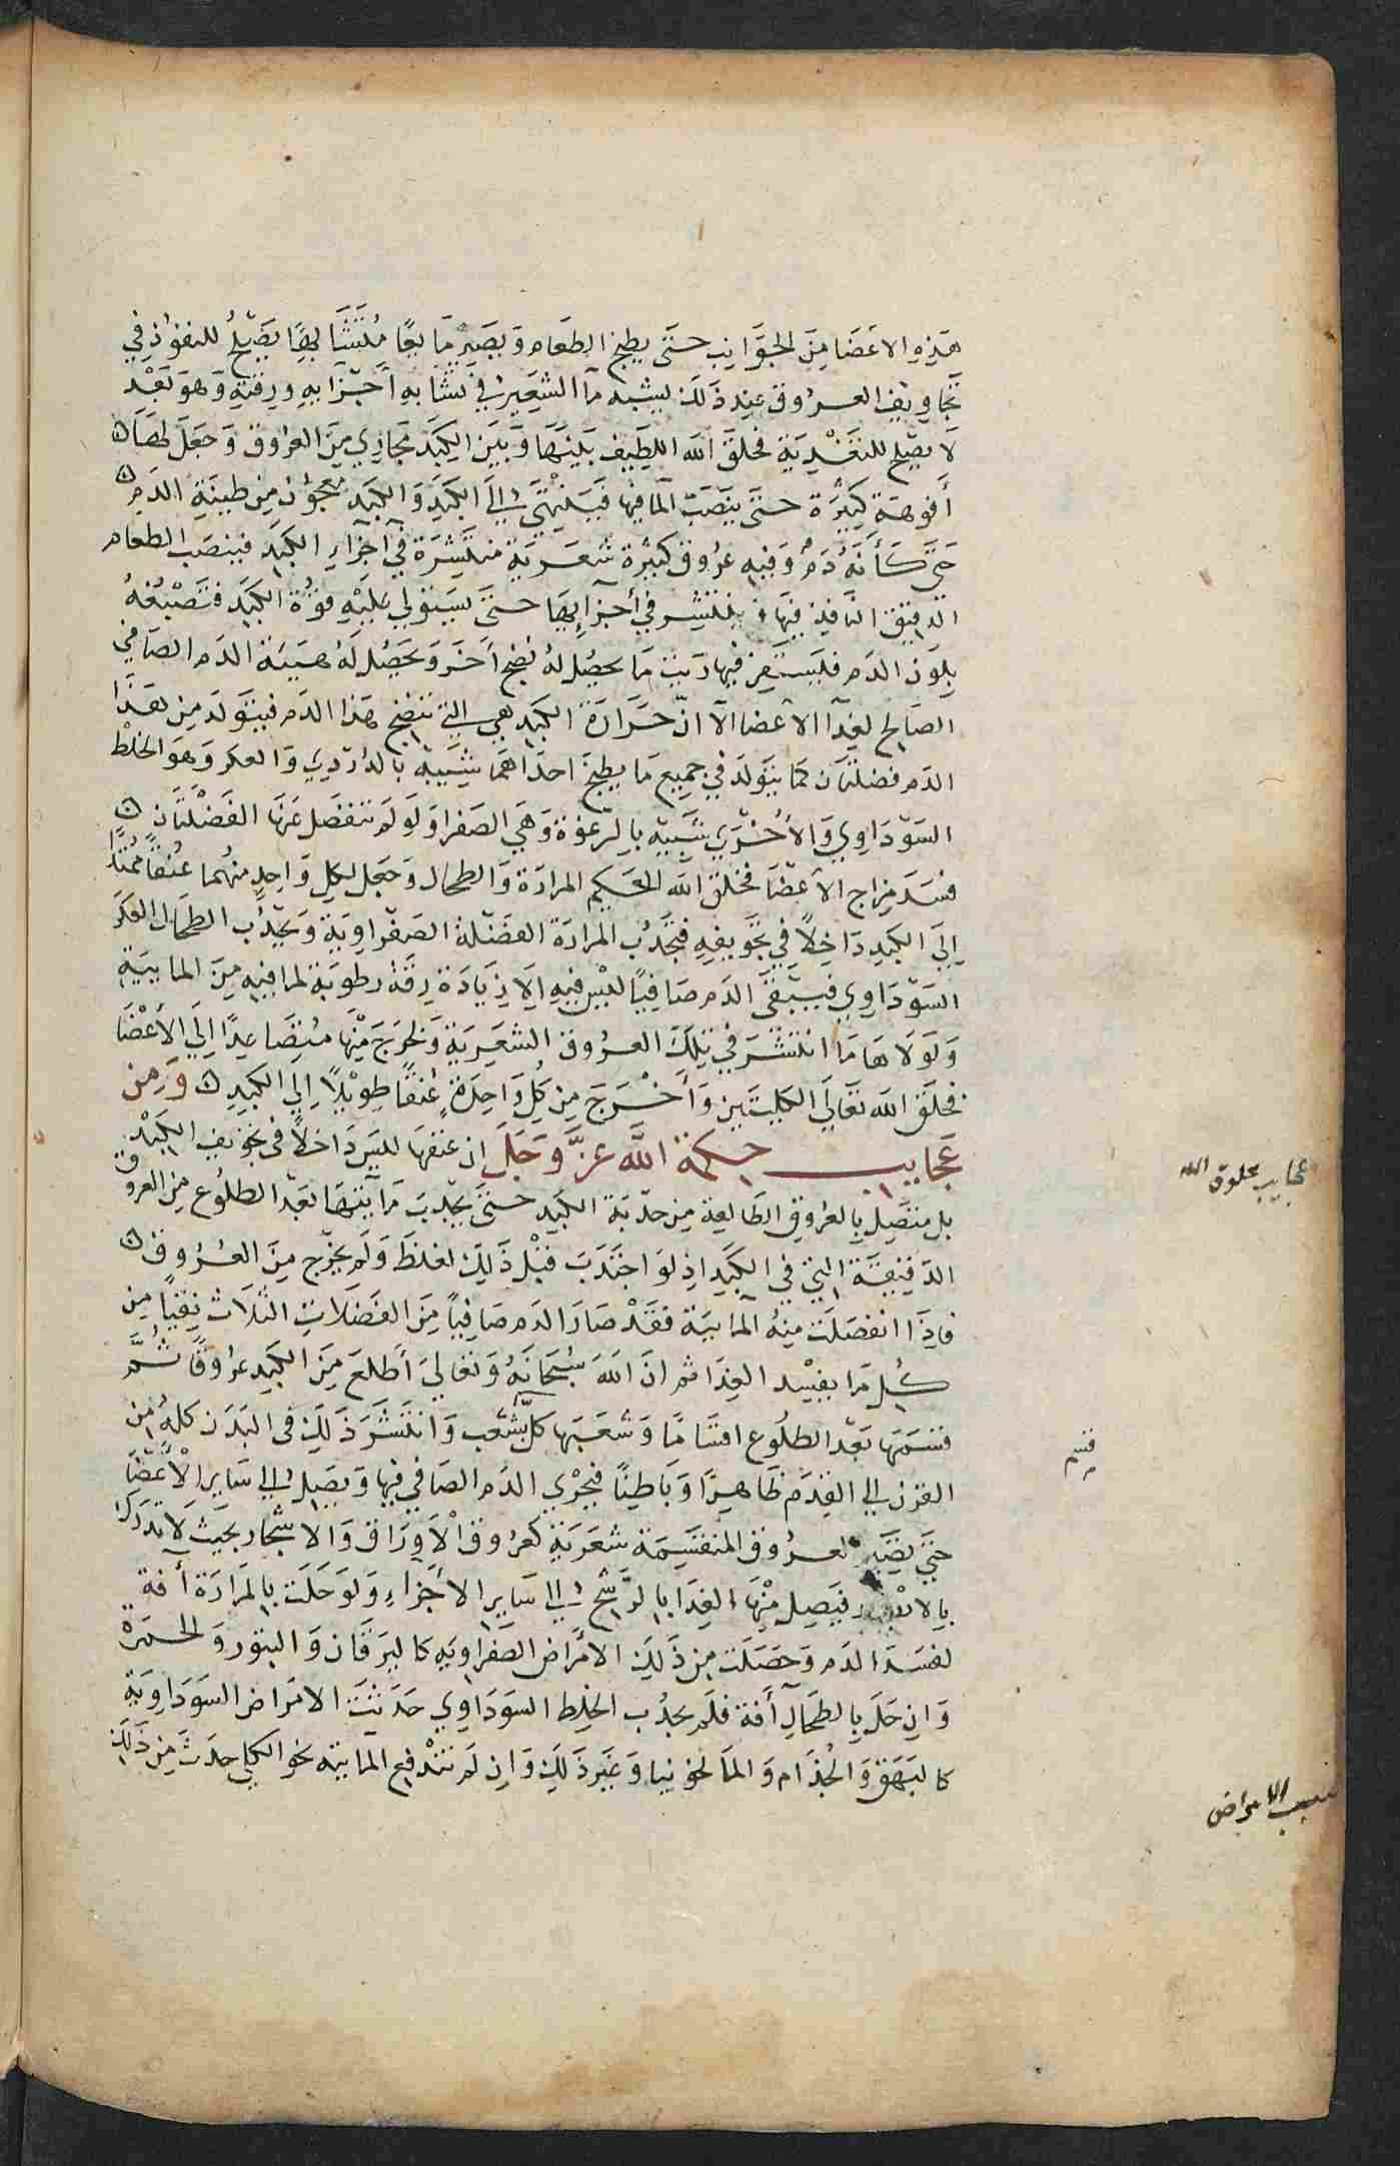 هَذِهِ الاَعضَا مِنَ الجَوَانِب حَتَّى يطبخ الطعَام وَيصَير مَايعًا مُتَشَابِهًا يَصْلحُ للنفوُذِ في
تجَاويفِ العرُوق عند ذَلكَ يشبه مآ الشعِير في تشَابهِ أجْزَايهِ ورقتهِ وَهوَ بَعْد
لَا يصْلح للتغْذيَة فخلقَ الله اللطِيف بَينهَا وَبيَن الكبَد مجَاري مِنَ العرُوق وَجعَلَ لهَا ن
أفوهَة كثيرَة حتَّى ينصَبّ المآ فيها فيَنتهَى الَى الكبَد وَالكبَد معجوُن من طينَةِ الدَم ن
حَتَّى كَأنَّه دَم وَفيهِ عرُوق كثيرة شعَريَة منتشرَة في أجزَاءِ الكبَد فينصَب الطعام
الدقيق النافذ فيهَا وينتشر في أجزَايهَا حتَّى يسَتولي عَلَيْهِ قوُّة الكبَد فتَصْبُغهُ
بِلوَن الدَم فليَستقِر فيها رَيث مَا يحصُل لهُ نضِج أخَر وَيحصُل لَهُ هيَئة الدَم الصَافي
الصَالح لغِذآ الاعضا الآ انّ حَرارَة الكبَد هي التي تنضج هَذا الدَم فيتوَلد مِن هَذا
الدَم فضلتَان كمَا يتَولدَ في جميع مَا يطبخ احدَاهمَا شَبيهَة بالدُردي وَالعكر وَهوَ الخلْط
السَوْدَاوي وَالأخْرَي شَبيهَة بالرّغوَة وَهي الصَفراوَلَو لَم تنفصَل عَنهَا الفَضْلَتَان ن
فسَدَ مزاج الاعضَا فخلقَ الله الحَكيم المرارَة وَالطحال وَجعَل لكل وَاحِدٍ منهُما عُنقًا ممُتدًّا
اِلَى الكبَدِ دَاخِلًا فِي تجويفهِ فتجَذُب المرارَة الفضْلة الصَفرَاوِيَة وَيجْذُب الطحَال العَكر
السَوْدَاوِي فيَبْقَى الدَم صَافيًا ليْس فيهِ اِلَا زيَادَة رِقَة رطوبَة لما فيه مِنَ المايية
وَلَوَلَا هَا مَا انتشَرَ في تِلكَ العروُق الشعَريَة وَلخرَجَ مِنهَا متصَاعِدًا اِلَى الأعْضَا
فخلَق الله تعَالىَ الكليتَين وَأخْرَجَ مِن كلِّ وَاحِدَة عُنقًا طوِيْلًا اِلى الكبدِ ن وَمِن
عَجَايب حِكمة اللَّه عزَّ وَجَلَ ان عنقهَا ليَس دَاخلًا فى تجويف الكبْد
بل متصِل بالعرُوق الطَالعِة مِن حدْبَة الكبَد حتىَّ يجْذبَ مَا يَتبَعهَا بعَدْ الطلوُع مِنَ العرُوق
الدَقيقَة التي في الكبَد اذِ لوَ اجتذَبَ قبْل ذَلكَ لغلظَ وَلَم يخرُج مِنَ العُرُوق ن
فإذَا انفصَلَت مِنهُ المآييَة فقَدْ صَارَ الدَم صَافيًا مِنَ الفَضَلَاتِ الثلَاث نِقيًا مِن
كُل مَا يفسِد الغذَا ثم انَ الله سُبْحَانَهُ وَتعَالىَ أَطلعَ مِنَ الكبَد عرُوقًا ثُمَّ
قسَمهَا بعَدْ الطلُوع اقسَامًا وَشعَبَها كلّ شعْب وَانتشَرَ ذَلكَ فى البَدَن كلهُ مِن
القرن الي القدَم ظَاهِرًا وَبَاطِنًا فيجْري الدَم الصَافي فيها وَيصَل الى سَاير الأعضَا
حتَّى تصَير العرُوق المنقسِمَة شعَريَة كعُروق الأورَاق وَالاشجار بحيث لَا تدرَك
بالابصَار فيَصِل مِنْهَا الغذَا بالرّشحْ الى سَاير الأجزَاءِ وَلَو حَلَت بالمَرارَة أَفة
لفسَدَ الدَم وَحَصَلَت مِن ذَلكَ الامرَاض الصَفراويَه كاليرَقَان وَالبثور وَالحُمرَة
وَانِ حَلَ بالطحَالِ أفة فلَم يجذُب الخِلط السَودَاوي حَدَثَتَ الامرَاض السَودَاوية
كالبَهَق وَالجُذَام وَالمَالخونيا وَغيَر ذَلكَ وَان لَم تنْدفِع المآيية نحوَ الكلى حدَثَ مِن ذَلَك
عجايب مخلوق الله
قسم
سبب الامراض